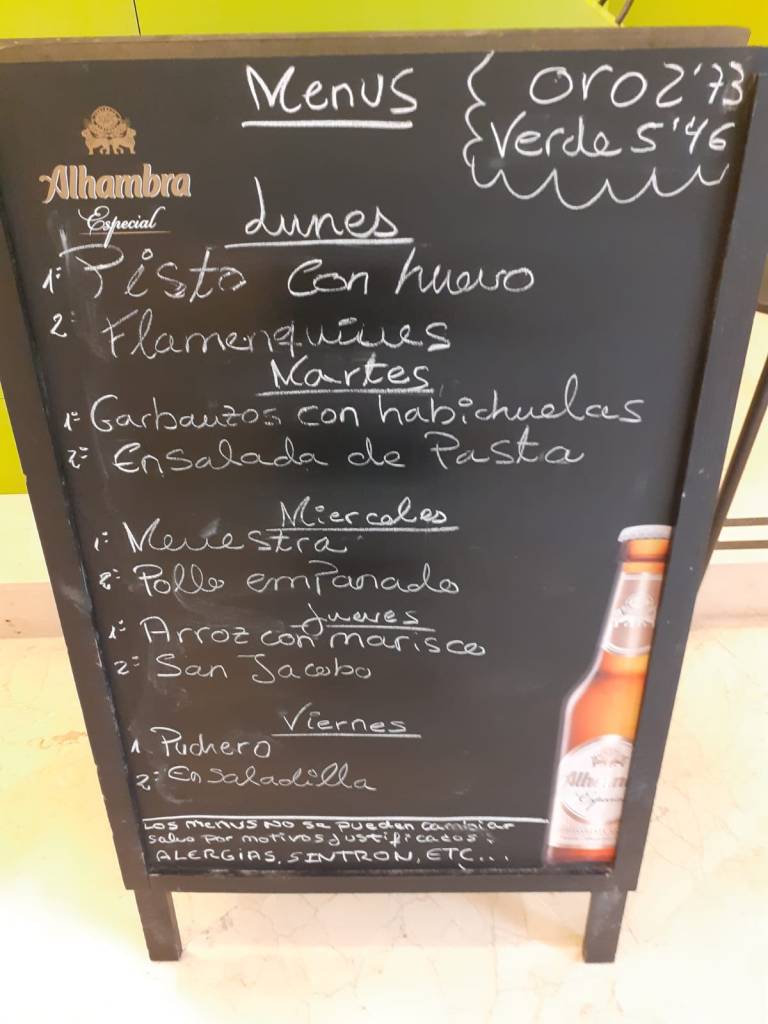 Menus
{ oro 2'73
{ Verde 5'46
Alhambra
Especial
Lunes
1º Pisto con huevo
2º Flamenquines
Martes
1º Garbanzos con habichuelas
2º Ensalada de Pasta
Miercoles
1º Menestra
2º Pollo emPanado
Jueves
1º Arroz con marisco
2º San Jacobo
Viernes
1 Puchero
2º Ensaladilla
Los menus NO se pueden cambiar
salvo por motivos justificados:
ALERGiAS, SINTRON, ETC...
Alhambra
Especial